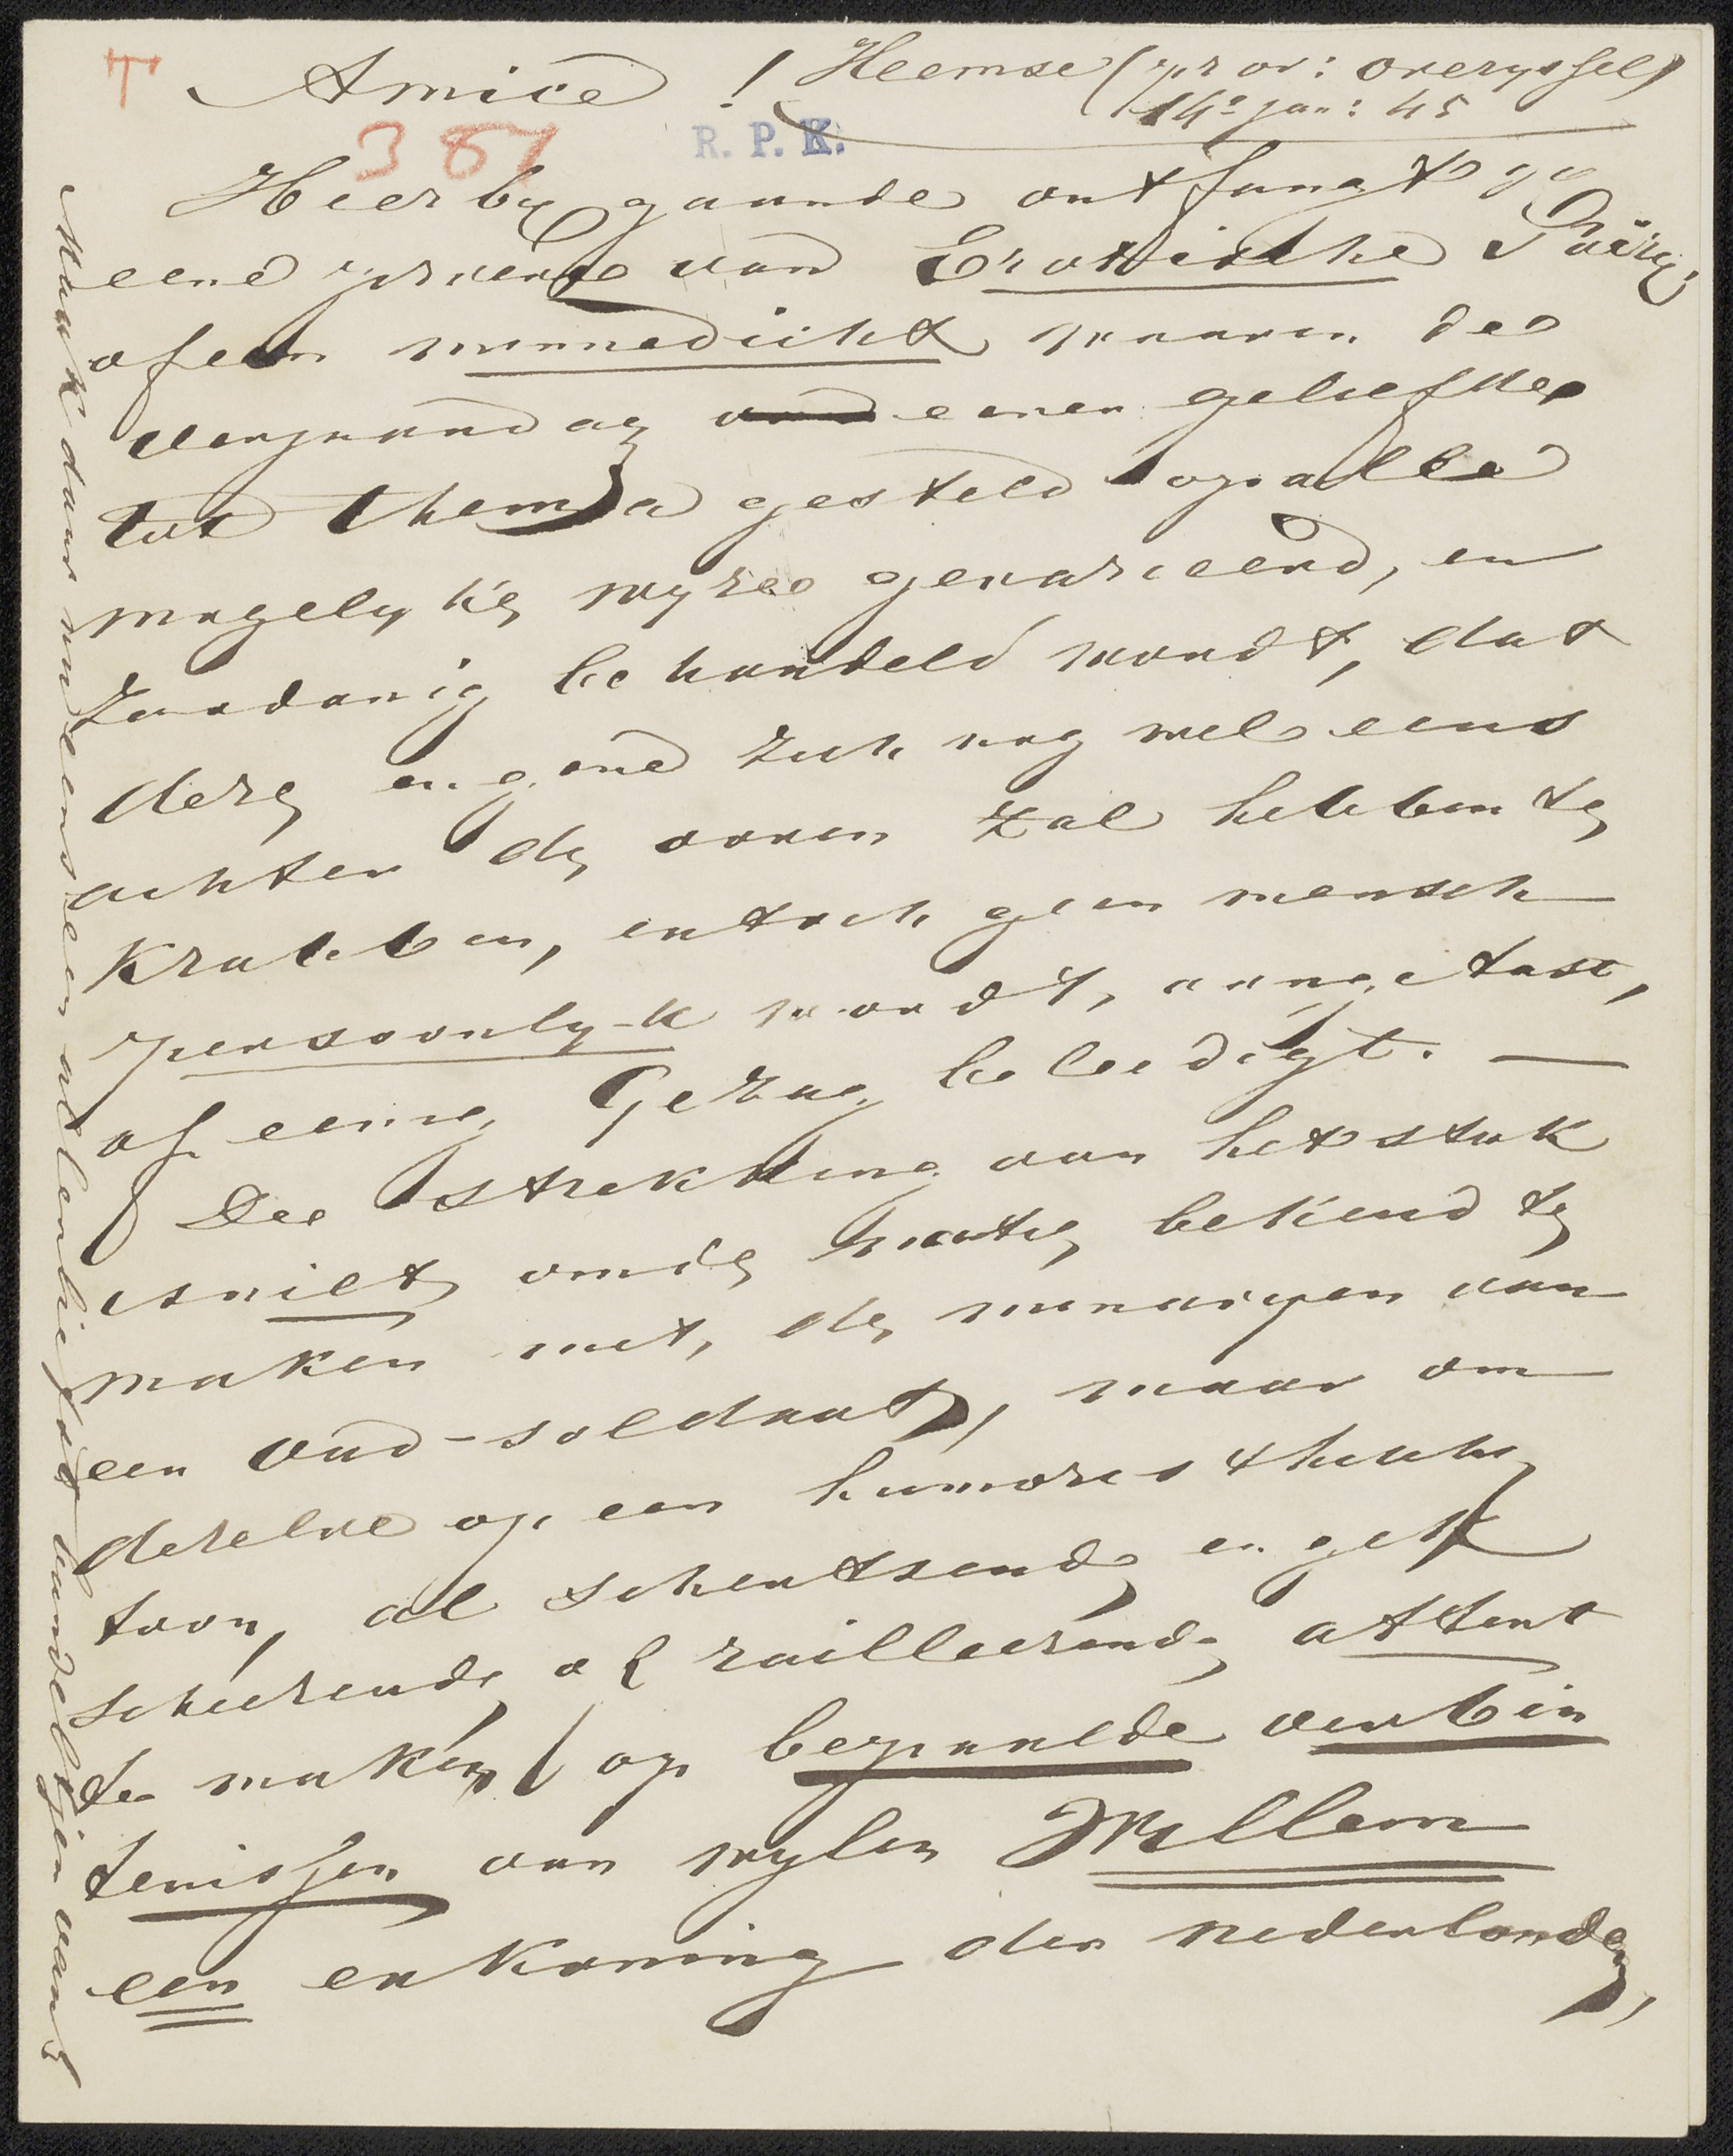 T
Amice ! Heemse (prov: overyssel)
14e jan: 45
387
R. P. K.
Hierby gaande ontfangt gy
eene proeve van Erotische Poëzy,
of een minnedicht waarin de
verjaardag eener geliefde
tot thema gesteld op alle
mogelyke wyze gevarieerd, en
zoodanig behandeld wordt, dat
deze en gene zich nog wel eens
achter de ooren zal hebben te
krabben, en toch geen mensch
persoonlyk wordt aangetast,
of eenig Gezag beleedigt. —
De strekking van het stuk
is niet om de natie bekend te
maken met de minaryen van
een oud-soldaat, maar om
dezelve op een humoristische
toon, al schertsende en gek
scheerende al railleerende attent
te maken op bepaalde verbin
tenissen van wylen Willem
een en koning der nederlanden,
Maak daar nu eens een allerliefst bundeltjen van